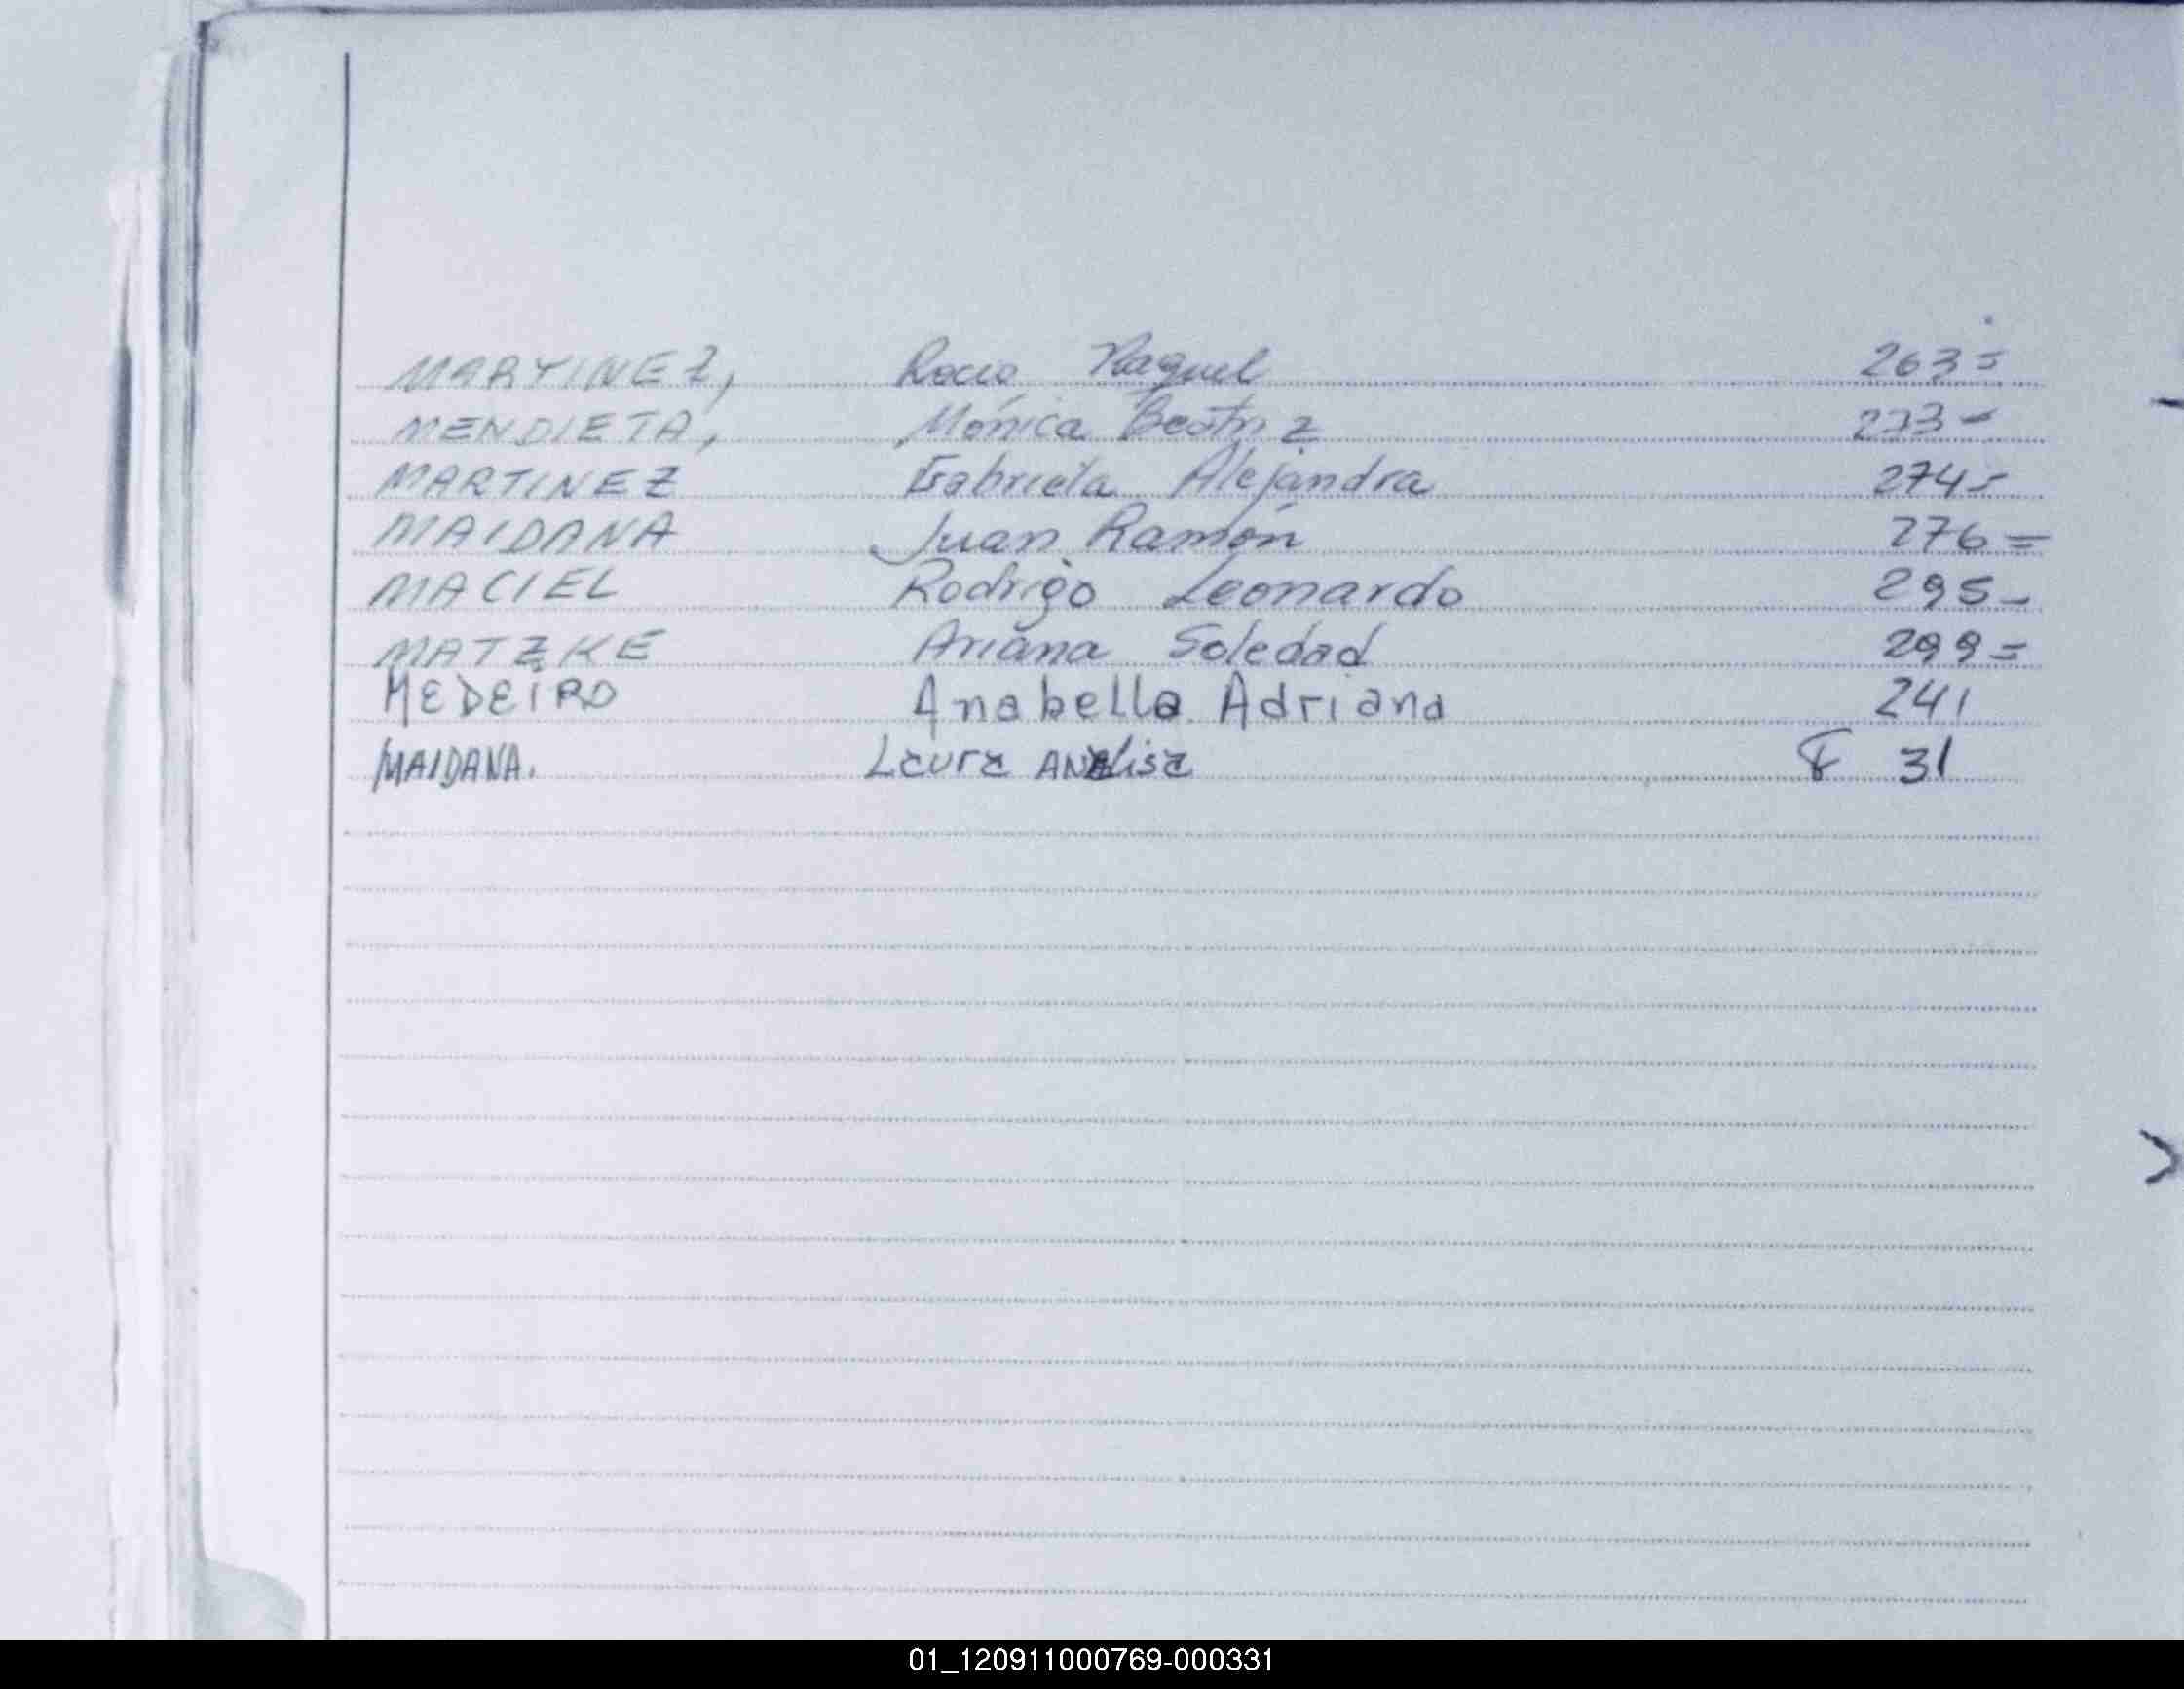 MARTINEZ, Rocio Raquel 263=
MENDIETA, Mónica Beatriz 273-
MARTINEZ Gabriela Alejandra 274=
MAIDANA Juan Ramón 276=
MACIEL Rodrigo Leonardo 295-
MATZKE Ariana Soledad 299=
MEDEIRO Anabella Adriana 241
MAIDANA. Laura ANAlisa F 31
01_120911000769-000331